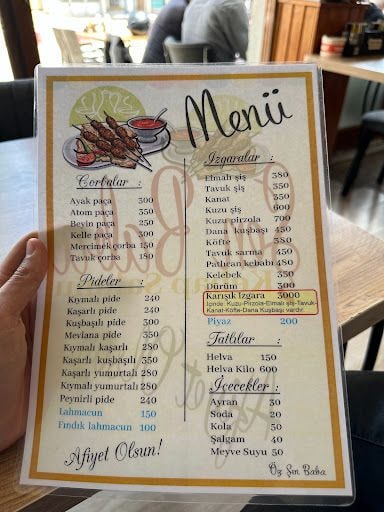 Menü
Çorbalar :
Ayak paça 300
Atom paça 350
Beyin paça 250
Kelle paça 300
Mercimek çorba 150
Tavuk çorba 180
Pideler :
Kıymalı pide 240
Kaşarlı pide 240
Kuşbaşılı pide 300
Mevlana pide 350
Kıymalı kaşarlı 280
Kaşarlı kuşbaşılı 350
Kaşarlı yumurtalı 280
Kıymalı yumurtalı 280
Peynirli pide 240
Lahmacun 150
Fındık lahmacun 100
Afiyet Olsun!
Izgaralar :
Elmalı şiş 380
Tavuk şiş 350
Kanat 350
Kuzu şiş 600
Kuzu pirzola 700
Dana kuşbaşı 450
Köfte 380
Tavuk sarma 450
Patlıcan kebabı 480
Kelebek 350
Dürüm 300
Karışık Izgara 3000
İçinde: Kuzu-Pirzola-Elmalı şiş-Tavuk-
Kanat-Köfte-Dana Kuşbaşı vardır.
Piyaz 200
Tatlılar :
Helva 150
Helva Kilo 600
İçecekler :
Ayran 30
Soda 20
Kola 50
Şalgam 40
Meyve Suyu 50
Öz Şın Baba